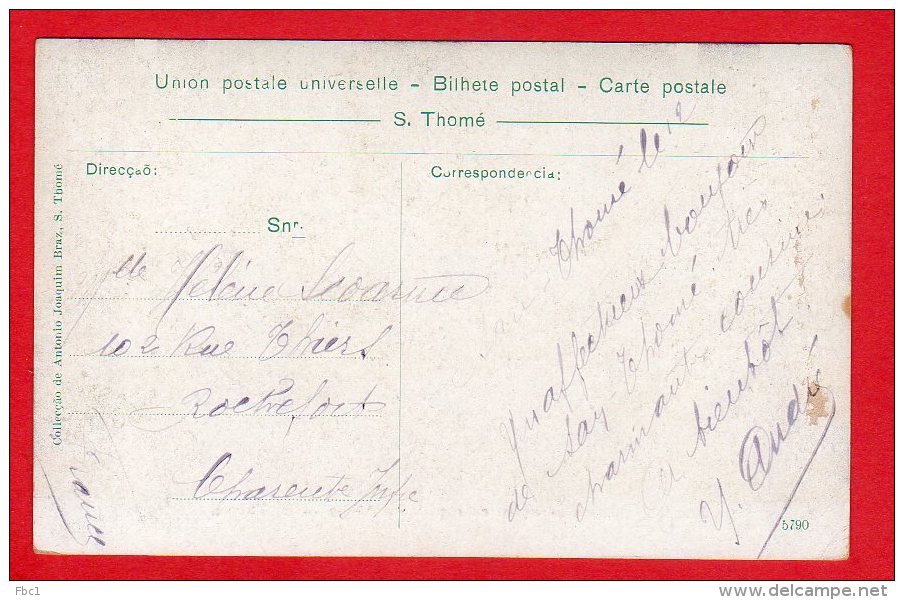 Union postale universelle – Bilhete postal – Carte postale
S. Thomé
Direcção:
Snr.
Mlle Hélène
102 Rue Thiers
Rochefort
Charente Infre
France
Correspondencia:
Thomé le 12
Un affectueux bonjour
de San Thomé
charmante cousine
A bientôt
Y. André
5790
Collecção de Antonio Joaquim Braz, S. Thomé
Fbc1
www.delcampe.net